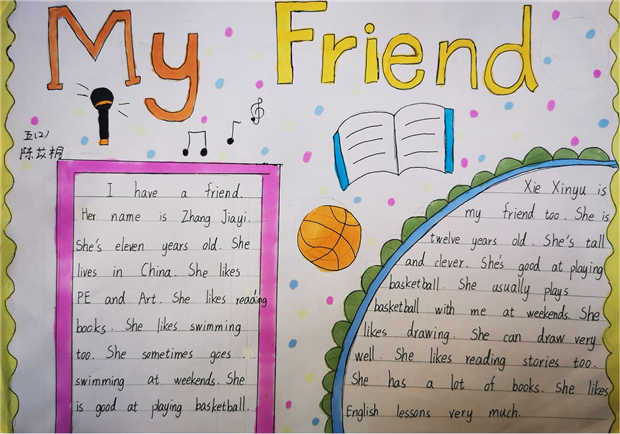 My Friend
五(2)
陈苡桐
I have a friend.
Her name is Zhang Jiayi.
She's eleven years old. She
lives in China. She likes
PE and Art. She likes reading
books. She likes swimming
too. She sometimes goes
swimming at weekends. She
is good at playing basketball.
Xie Xinyu is
my friend too. She is
twelve years old. She's tall
and clever. She's good at playing
basketball. She usually plays
basketball with me at weekends. She
likes drawing. She can draw very
well. She likes reading stories too.
She has a lot of books. She likes
English lessons very much.